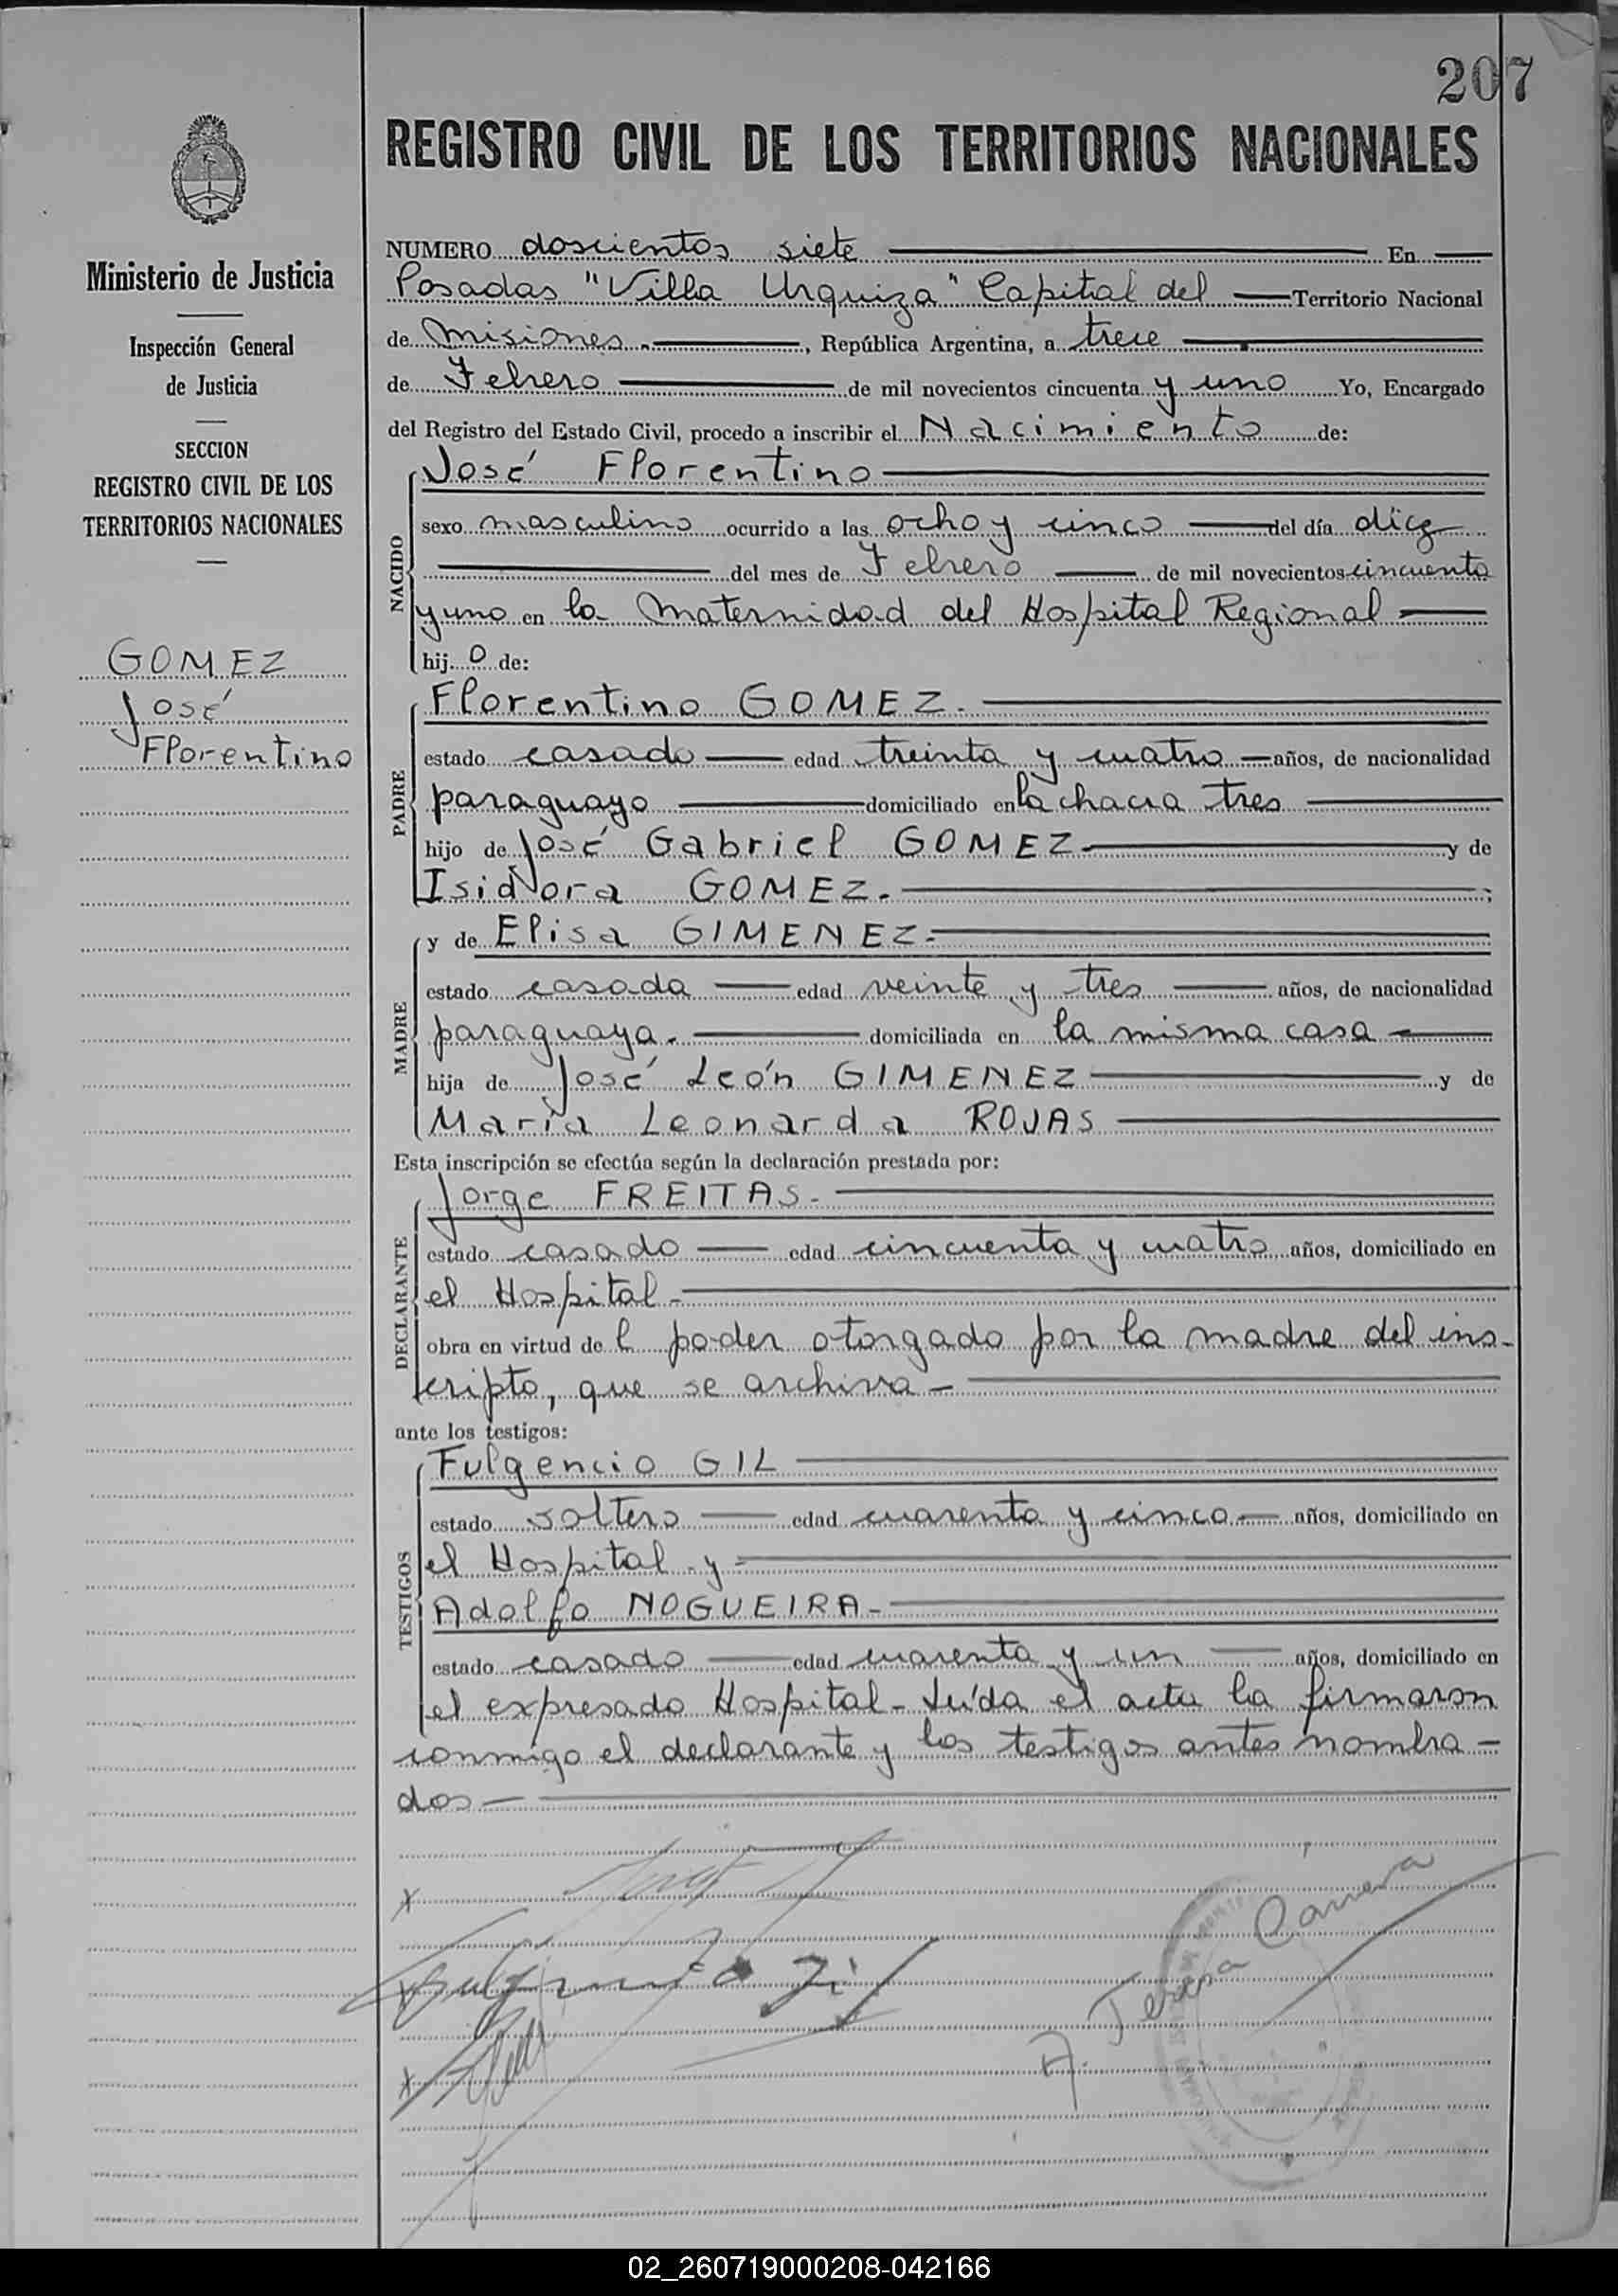 207
REGISTRO CIVIL DE LOS TERRITORIOS NACIONALES
Ministerio de Justicia
Inspección General
de Justicia
SECCION
REGISTRO CIVIL DE LOS
TERRITORIOS NACIONALES
GOMEZ
José
Florentino
NUMERO doscientos siete En
Posadas "Villa Urquiza" Capital del Territorio Nacional
de Misiones. , República Argentina, a trece
de Febrero de mil novecientos cincuenta y uno Yo, Encargado
del Registro del Estado Civil, procedo a inscribir el Nacimiento de:
NACIDO
José Florentino
sexo masculino ocurrido a las ocho y cinco del día diez
del mes de Febrero de mil novecientos cincuenta
y uno en la Maternidad del Hospital Regional
hij o de:
PADRE
Florentino GOMEZ.
estado casado edad treinta y cuatro años, de nacionalidad
paraguayo domiciliado en la chacra tres
hijo de José Gabriel GOMEZ y de
Isidora GOMEZ. ;
MADRE
y de Elisa GIMENEZ.
estado casada edad veinte y tres años, de nacionalidad
paraguaya. domiciliada en la misma casa
hija de José León GIMENEZ y de
María Leonarda ROJAS
Esta inscripción se efectúa según la declaración prestada por:
DECLARANTE
Jorge FREITAS.
estado casado edad cincuenta y cuatro años, domiciliado en
el Hospital
obra en virtud de l poder otorgado por la madre del ins-
cripto, que se archiva
ante los testigos:
TESTIGOS
Fulgencio GIL
estado soltero edad cuarenta y cinco años, domiciliado en
el Hospital y
Adolfo NOGUEIRA
estado casado edad cuarenta y un años, domiciliado en
el expresado Hospital - Leída el acta la firmaron
conmigo el declarante y los testigos antes nombra-
dos
Fulgencio Gil
A. Teresa Carrera
02_260719000208-042166